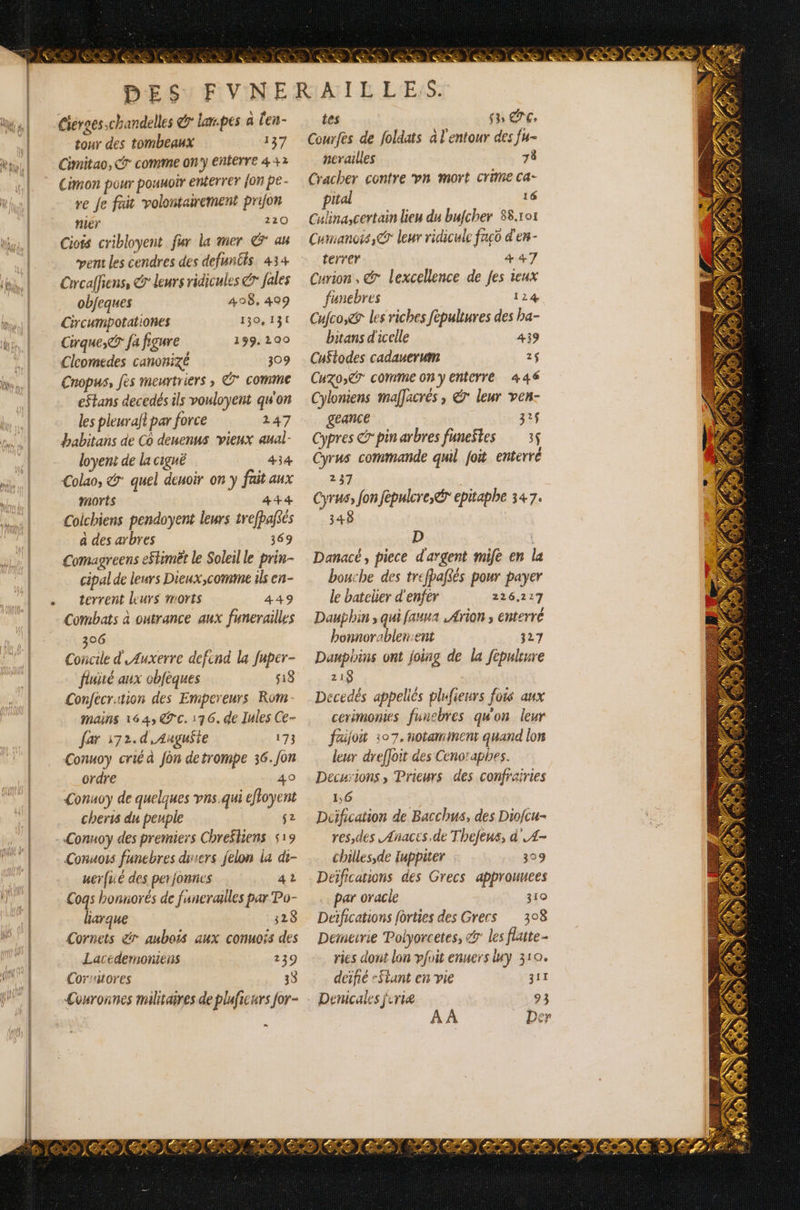 DES FVNERAILLES.
Cierges,chandelles & lampes à l'en-
tour des tombeaux 137
Cimitao, & comme on y enterre 442
Cimon pour pouuoir enterrer son pe-
re se fait volontairement prison
nier 220
Ciois cribloyent sur la mer & au
vent les cendres des defuncts 434
Circassiens, & leurs ridicules & sales
obseques 408, 409
Circumpotationes 130, 131
Cirque,& sa figure 199.200
Cleomedes canonizé 309
Cnopus, ses meurtriers, & comme
estans decedés ils vouloyent qu'on
les pleurast par force 247
habitans de Cò deuenus vieux aual-
loyent de la ciguë 434
Colao, & quel deuoir on y fait aux
morts 444
Colchiens pendoyent leurs trespassés
à des arbres 369
Comagreens estimẽt le Soleil le prin-
cipal de leurs Dieux,comme ils en-
terrent leurs morts 449
Combats à outrance aux funerailles
306
Concile d'Auxerre defend la super-
fluité aux obseques 518
Consecration des Empereurs Rom-
mains 164, &c. 176. de Iules Ce-
sar 172. d'Auguste 173
Conuoy crié à son de trompe 36. son
ordre 40
Conuoy de quelques vns qui estoyent
cheris du peuple 52
Conuoy des premiers Chrestiens 519
Conuois funebres diuers selon la di-
uersité des personnes 42
Coqs honnorés de funerailles par Po-
liarque 328
Cornets & aubois aux conuois des
Lacedemoniens 239
Corsitores 38
Couronnes militaires de plusieurs for-
tes 53, &c.
Courses de soldats à l'entour des fu-
nerailles 78
Cracher contre vn mort crime ca-
pital 16
Culina,certain lieu du buscher 88.101
Cumanois,& leur ridicule façõ d'en-
terrer 447
Curion, & lexcellence de ses ieux
funebres 124
Cusco,& les riches sepultures des ha-
bitans d'icelle 439
Custodes cadauerum 25
Cuzo,& comme on y enterre 446
Cyloniens massacrés, & leur ven-
geance 325
Cypres & pin arbres funestes 35
Cyrus commande quil soit enterré
237
Cyrus, son sepulcre,& epitaphe 347.
348
D
Danacé, piece d'argent mise en la
bouche des trespassés pour payer
le batelier d'enfer 226,227
Dauphin, qui sauua Arion, enterré
honnorablement 327
Dauphins ont soing de la sepulture
218
Decedés appellés plusieurs fois aux
cerimonies funebres qu'on leur
faisoit 307. notamment quand lon
leur dressoit des Cenotaphes.
Decurions, Prieurs des confrairies
156
Deification de Bacchus, des Dioscu-
res,des Anaces.de Theseus, d'A-
chilles,de Iuppiter 309
Deifications des Grecs approuuees
par oracle 310
Deifications sorties des Grecs 308
Demetrie Polyorcetes, & les flatte-
ries dont lon vsoit enuers luy 310.
deifié estant en vie 311
Denicales feriæ 93
AA Der